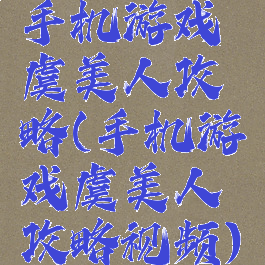 手机游戏
虞美人攻
略(手机游
戏虞美人
攻略视频)